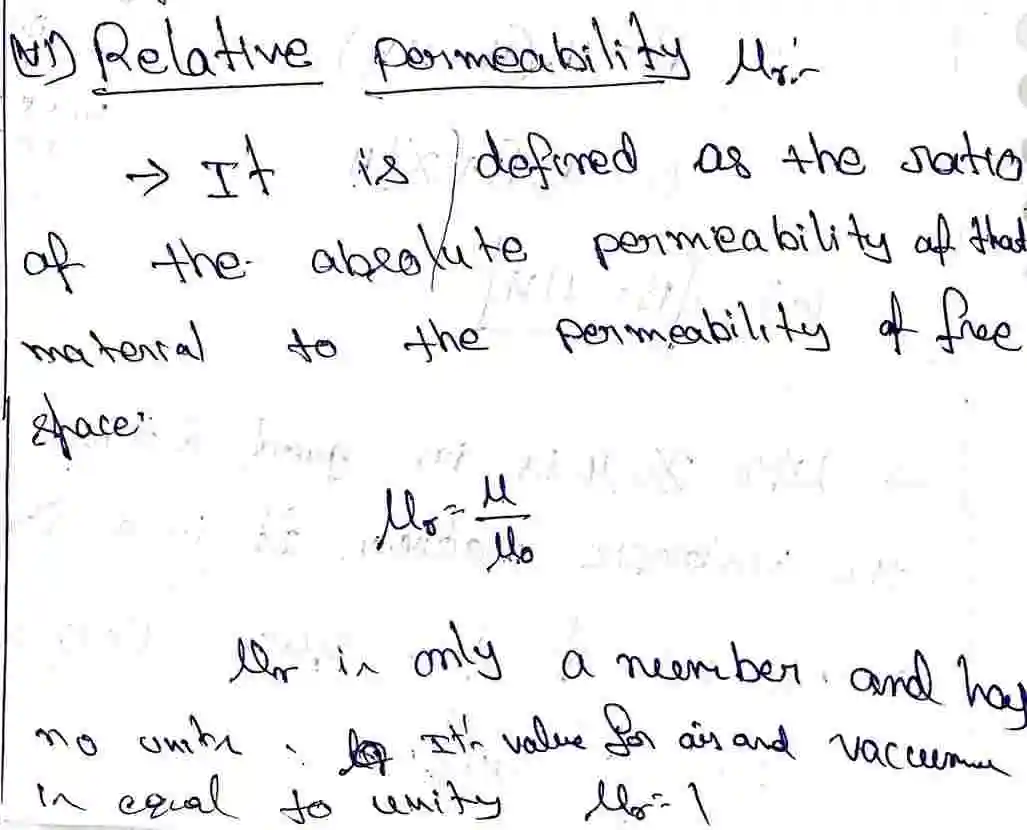 VI) Relative permeability μr:-
→ It is defined as the ratio
of the absolute permeability of that
material to the permeability of free
space.
μr = μ/μ0
μr is only a number and has
no units. It's value for air and vaccum
is equal to unity μr = 1